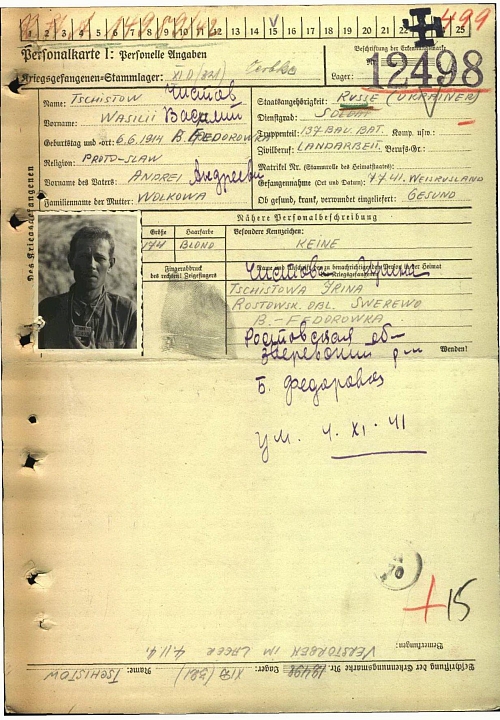 499
1 2 3 4 5 6 7 8 9 10 11 12 13 14 15 16 17 18 19 20 21 22 23 24 25
Personalkarte I: Personelle Angaben
Kriegsgefangenen-Stammlager: XI D (321)
Beschriftung der Erkennungsmarke
Nr. 12498
Lager:
Des Kriegsgefangenen
Name: TSCHISTOW Чистов
Vorname: WASILII Василий
Geburtstag und -ort: 6.6.1914 B. FEDOROWKA
Religion: PROTO-SLAW
Vorname des Vaters: ANDREI Андреевич
Familienname der Mutter: WOLKOWA
Staatsangehörigkeit: RUSSE (UKRAINER)
Dienstgrad: SOLDAT
Truppenteil: 137 BAU. BAT. Komp. usw.:
Zivilberuf: LANDARBEIT. Berufs-Gr.:
Matrikel Nr. (Stammrolle des Heimatstaates):
Gefangennahme (Ort und Datum): 7.7.41. WEISRUSLAND
Ob gesund, krank, verwundet eingeliefert: GESUND
Nähere Personalbeschreibung
Größe Haarfarbe Besondere Kennzeichen:
174 BLOND KEINE
Fingerabdruck
des rechten Zeigefingers
Name und Anschrift der zu benachrichtigenden Person in der Heimat
des Kriegsgefangenen
Чистова Ирина
TSCHISTOWA YRINA
ROSTOWSK. OBL. SWEREWO
B. - FEDOROWKA
Ростовская об-
Зверевский р-н
Wenden!
Б. Федоровка
ум. 4. XI. 41
+15
Bemerkungen:
VERSTORBEN IM LAGER 4.11.41
Beschriftung der Erkennungsmarke Nr. 12498 Lager: XI D (321) Name: TSCHISTOW